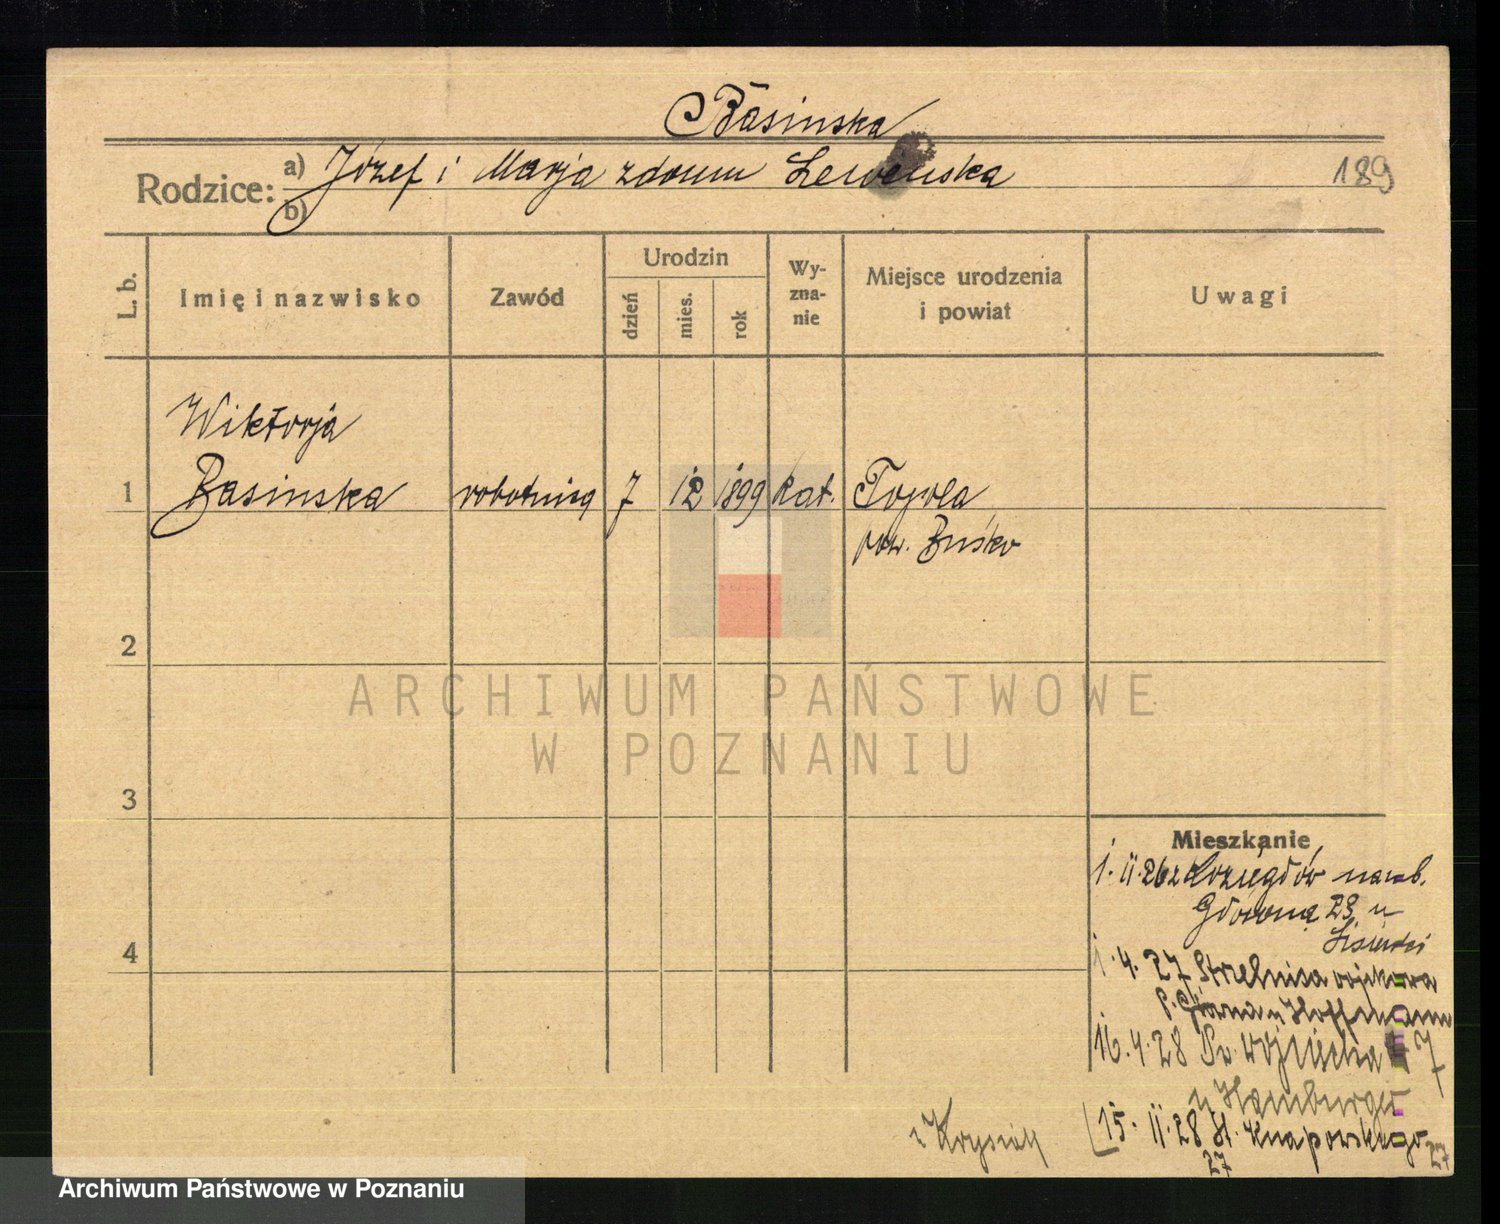 Basinska
Rodzice: a) Józef i Marja z domu
b)
189
L. b.
Imię i nazwisko
Zawód
Urodzin
dzień
mies.
rok
Wy-
zna-
nie
Miejsce urodzenia
i powiat
Uwagi
Wiktorja
1 Basinska robotnica 7 12 1899 kat. Topola
pow. Busko
2
3
4
Mieszkanie
1. 11. 26 z
23 u
1. 4. 27 Strzelnica
u Hoffmann
16. 4. 28 Św. Wojciecha 7
u Hamburger
15. 11. 28 St. Knapowskiego 27
27
ARCHIWUM PAŃSTWOWE
W POZNANIU
Archiwum Państwowe w Poznaniu